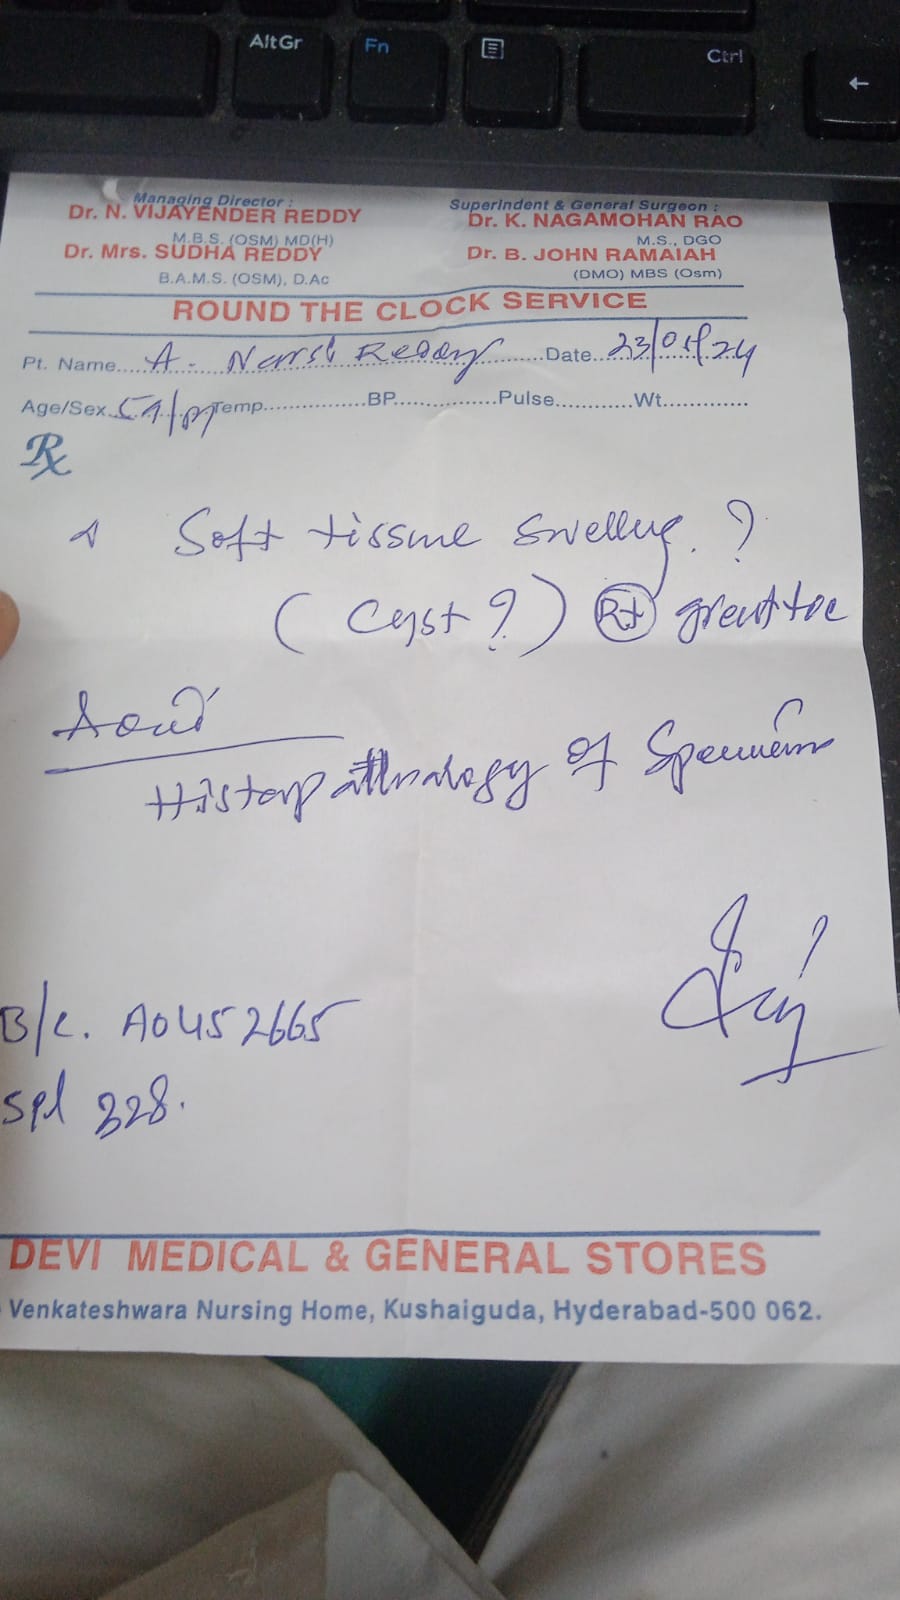 AltGr Fn Ctrl
←
Managing Director :
Dr. N. VIJAYENDER REDDY
M.B.S. (OSM) MD(H)
Dr. Mrs. SUDHA REDDY
B.A.M.S. (OSM), D.Ac
Superindent & General Surgeon :
Dr. K. NAGAMOHAN RAO
M.S., DGO
Dr. B. JOHN RAMAIAH
(DMO) MBS (Osm)
ROUND THE CLOCK SERVICE
Pt. Name.... A. Reddy ......Date..
Age/Sex.. Temp...............BP...............Pulse............Wt..............
Rx
Soft tissue swelling. ?
(Cyst ?) Rt great toe
Histopathology of Specimen
B/c. A0452665
Spl 328.
DEVI MEDICAL & GENERAL STORES
Venkateshwara Nursing Home, Kushaiguda, Hyderabad-500 062.